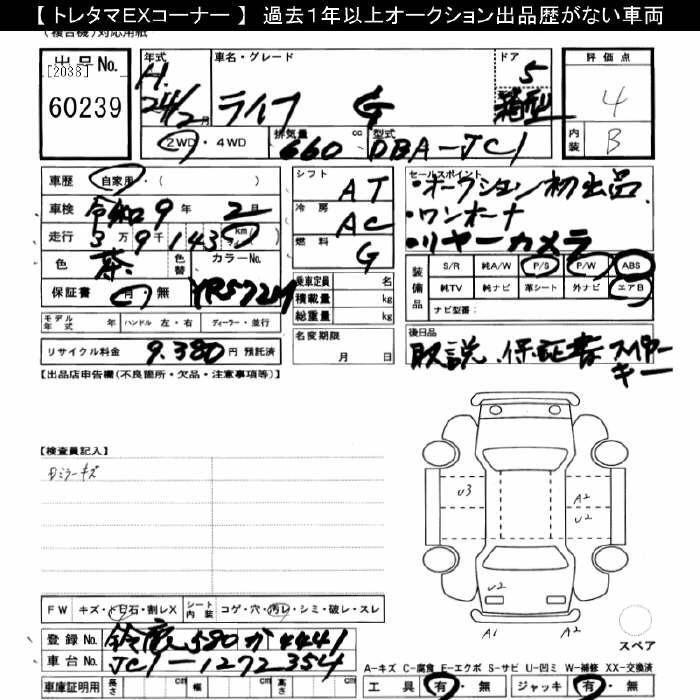 【 トレタマEXコーナー 】 過去1年以上オークション出品歴がない車両
(複合機)対応用紙
出品No.
[2038]
60239
年式
H.
24/2月
車名・グレード
ライフ G
ドア
5
箱型
評価点
4
内装
B
2WD・4WD
排気量
660 cc
型式
DBA-JC1
車歴 自家用・( )
車検 令和9年2月
走行 3万9千143 km
色 茶 色替 カラーNo.
保証書 有・無 YR572M
モデル年式 年 ハンドル 左・右 ディーラー・並行
リサイクル料金 9.380円 預託済
シフト AT
冷房 AC
燃料 G
乗車定員 名
積載量 kg
総重量 kg
名変期限
月 日
セールスポイント
・オークション初出品
・ワンオーナ
・リヤーカメラ
装備品
S/R 純A/W P/S P/W ABS
純TV 純ナビ 革シート 外ナビ エアB
ナビ型番:
後日品
取説.保証書 スペヤーキー
【出品店申告欄(不良箇所・欠品・注意事項等)】
【検査員記入】
ミラーキズ
U3
A2
U2
U2
A1 A2
スペア
FW キズ・トビ石・割レX
シート内装 コゲ・穴・汚レ・シミ・破レ・スレ
登録No. 鈴鹿 580 か 4441
車台No. JC1-1272354
車庫証明用 長さ 幅 高さ
A-キズ C-腐食 E-エクボ S-サビ U-凹ミ W-補修 XX-交換済
工具 有・無 ジャッキ 有・無